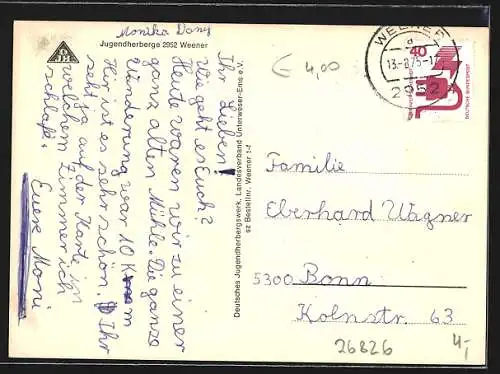 Monika Dany
DJH
Jugendherberge 2952 Weener
Ihr Lieben!
Wie geht es Euch?
Heute waren wir zu einer
ganz alten Mühle. Die ganze
Wanderung war 10 Km
Hir ist es sehr schön. Ihr
seht ja auf der Karte in
welchem Zimmer ich
schlafe.
Euere Moni
Deutsches Jugendherbergswerk, Landesverband Unterweser-Ems e.V.
sz Bestellnr. Weener 1-f
€ 4,00
WEENER
d
13.-8.75-17
2952
40
DEUTSCHE BUNDESPOST
Familie
Eberhard Wagner
5300 Bonn
Kolnstr. 63
26826
4,-